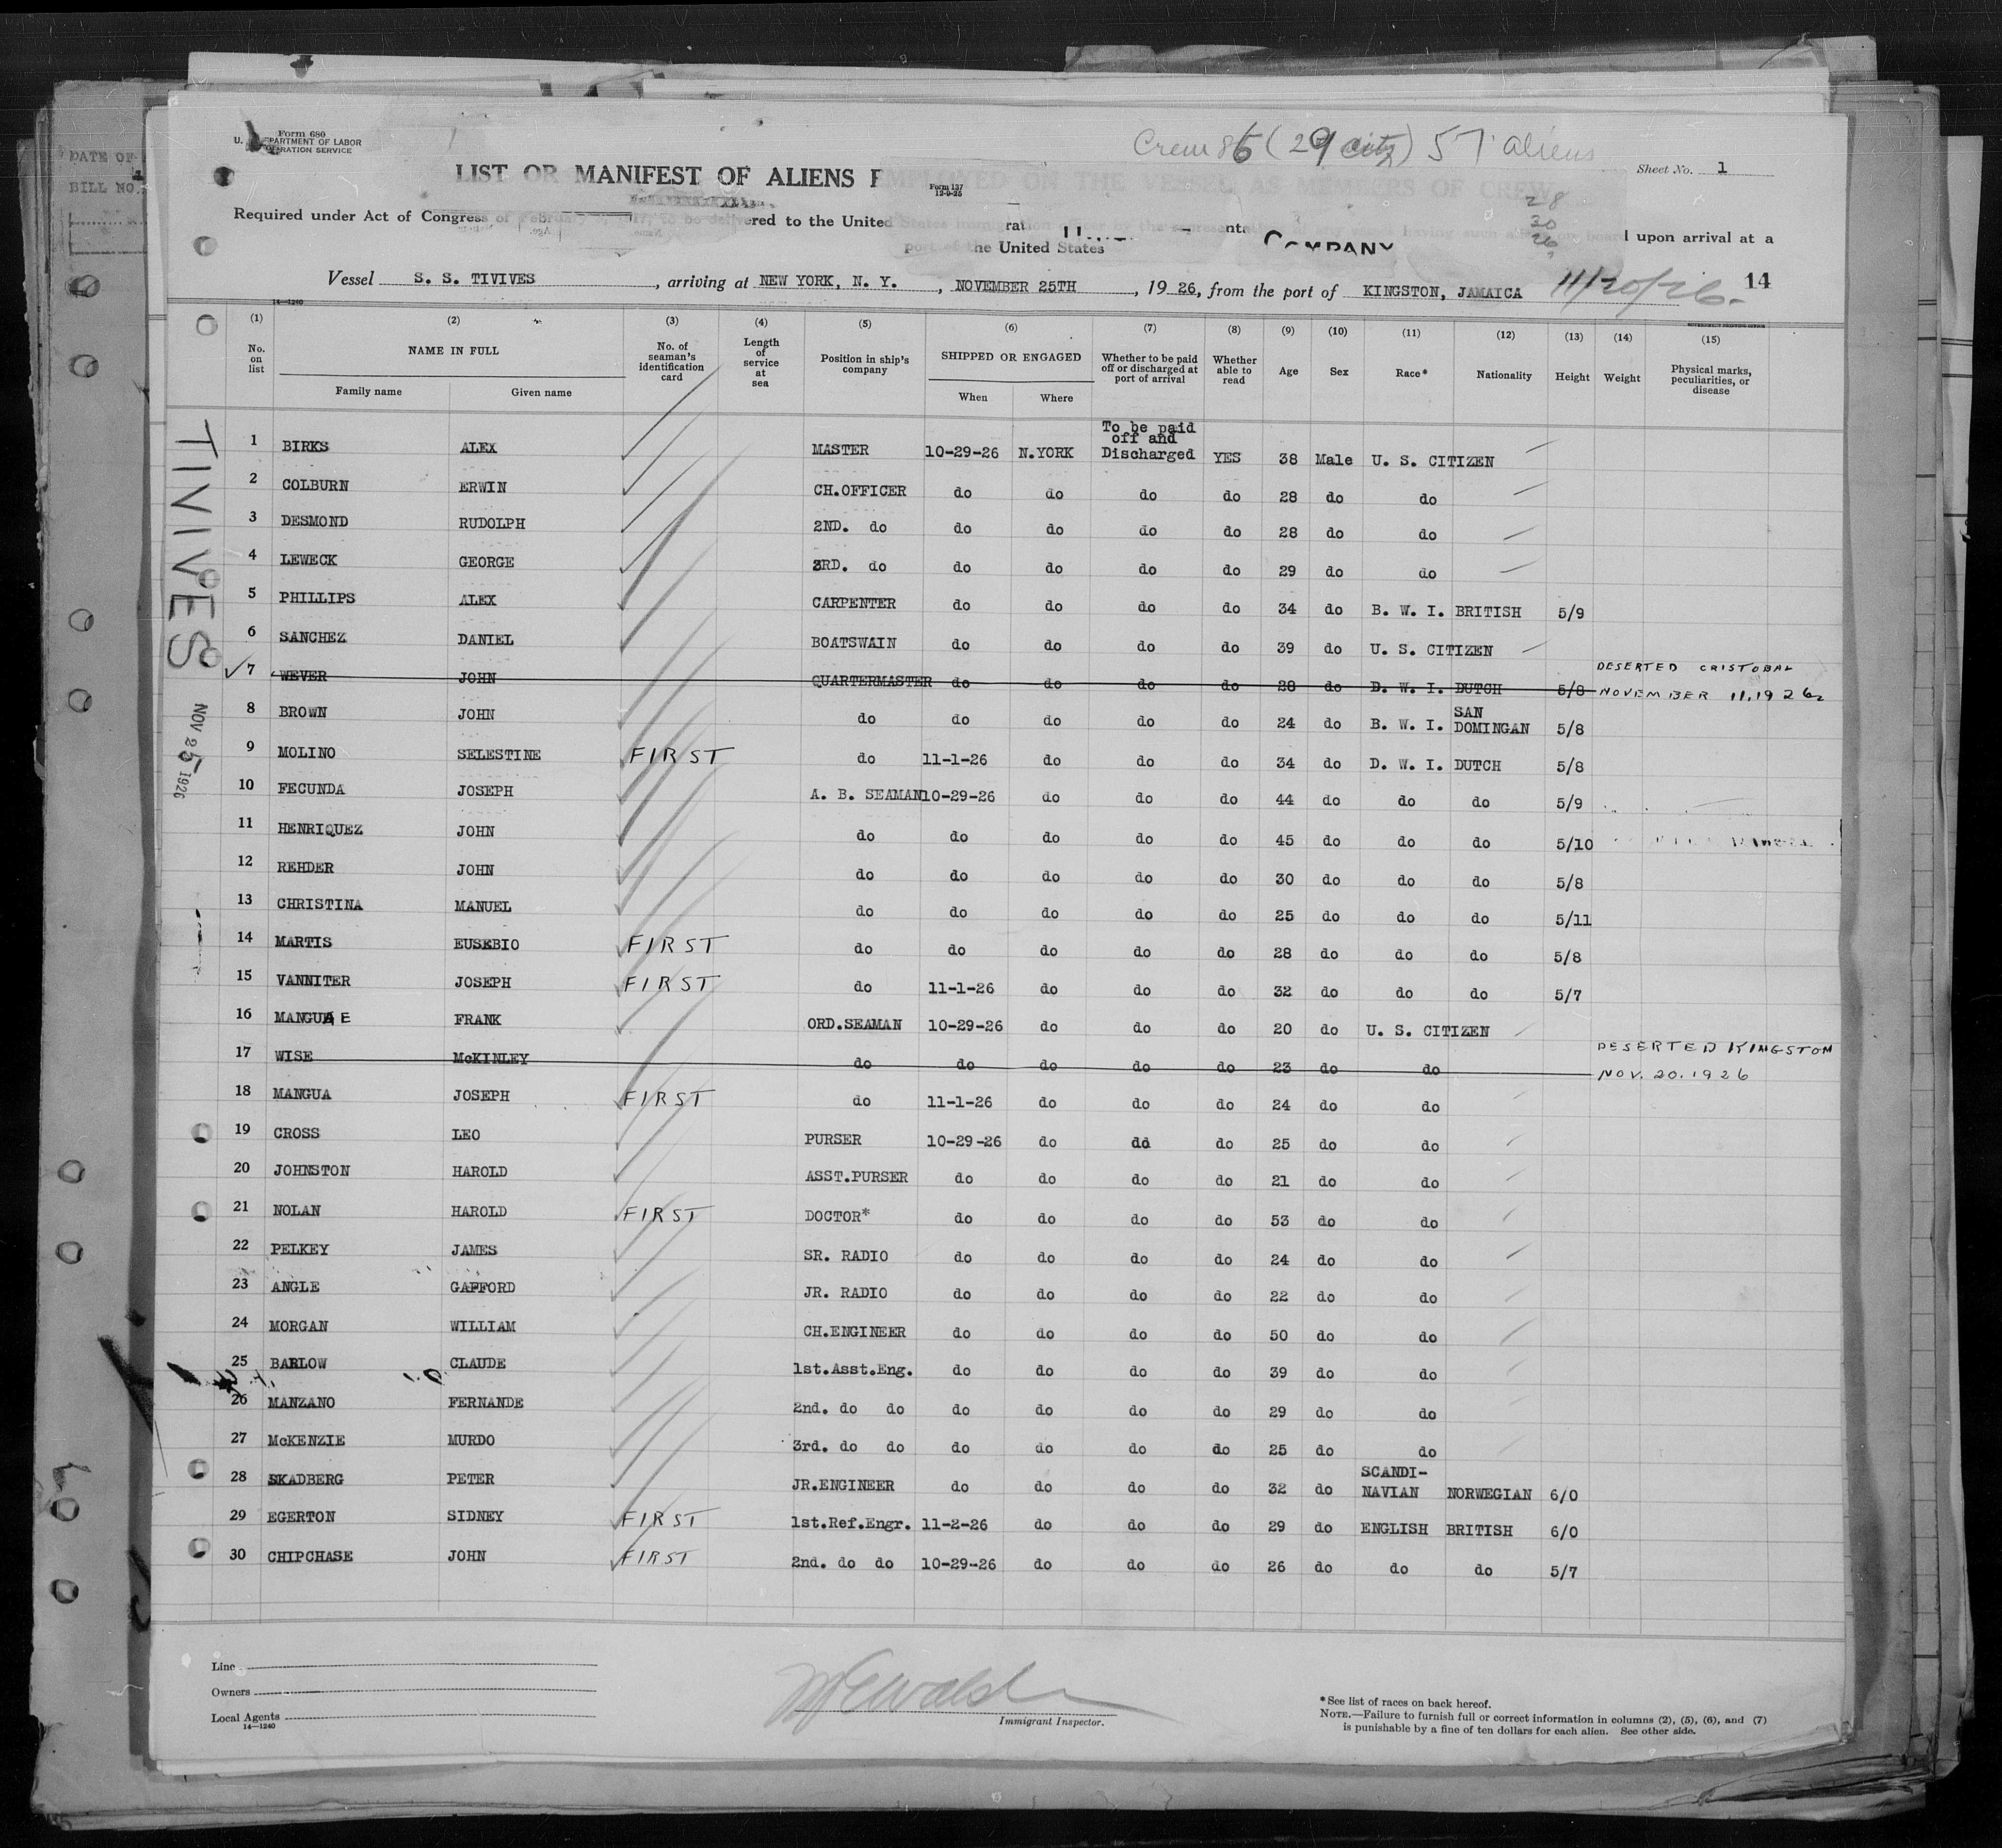 Form 680
U. DEPARTMENT OF LABOR
Crew 86 (29 citz) 57 aliens
Sheet No. 1
LIST OR MANIFEST OF ALIENS EMPLOYED ON THE VESSEL AS MEMBERS OF CREW
Form 137
12-9-25
28
30
26
Required under Act of Congress of February to be delivered to the United States immigration officer by the representative of any vessel having such aliens on board upon arrival at a
port of the United States
COMPANY
Vessel S. S. TIVIVES, arriving at NEW YORK, N. Y., NOVEMBER 25TH, 1926, from the port of KINGSTON, JAMAICA 11/20/26- 14
14—1240
(1) (2) (3) (4) (5) (6) (7) (8) (9) (10) (11) (12) (13) (14) (15)
No. on list NAME IN FULL Family name Given name No. of seaman's identification card Length of service at sea Position in ship's company SHIPPED OR ENGAGED When Where Whether to be paid off or discharged at port of arrival Whether able to read Age Sex Race* Nationality Height Weight Physical marks, peculiarities, or disease
TIVIVES
NOV 25 1926
1 BIRKS ALEX MASTER 10-29-26 N.YORK To be paid off and Discharged YES 38 Male U. S. CITIZEN
2 COLBURN ERWIN CH.OFFICER do do do do 28 do do
3 DESMOND RUDOLPH 2ND. do do do do do 28 do do
4 LEWECK GEORGE 3RD. do do do do do 29 do do
5 PHILLIPS ALEX CARPENTER do do do do 34 do B. W. I. BRITISH 5/9
6 SANCHEZ DANIEL BOATSWAIN do do do do 39 do U. S. CITIZEN
7 WEVER JOHN QUARTERMASTER do do do do 28 do D. W. I. DUTCH 5/8 DESERTED CRISTOBAL NOVEMBER 11, 1926
8 BROWN JOHN do do do do do 24 do B. W. I. SAN DOMINGAN 5/8
9 MOLINO SELESTINE FIRST do 11-1-26 do do do 34 do D. W. I. DUTCH 5/8
10 FECUNDA JOSEPH A. B. SEAMAN 10-29-26 do do do 44 do do do 5/9
11 HENRIQUEZ JOHN do do do do do 45 do do do 5/10
12 REHDER JOHN do do do do do 30 do do do 5/8
13 CHRISTINA MANUEL do do do do do 25 do do do 5/11
14 MARTIS EUSEBIO FIRST do do do do do 28 do do do 5/8
15 VANNITER JOSEPH FIRST do 11-1-26 do do do 32 do do do 5/7
16 MANGUAE FRANK ORD.SEAMAN 10-29-26 do do do 20 do U. S. CITIZEN
17 WISE McKINLEY do do do do do 23 do do DESERTED KINGSTON NOV. 20. 1926
18 MANGUA JOSEPH FIRST do 11-1-26 do do do 24 do do
19 CROSS LEO PURSER 10-29-26 do do do 25 do do
20 JOHNSTON HAROLD ASST.PURSER do do do do 21 do do
21 NOLAN HAROLD FIRST DOCTOR* do do do do 53 do do
22 PELKEY JAMES SR. RADIO do do do do 24 do do
23 ANGLE GAFFORD JR. RADIO do do do do 22 do do
24 MORGAN WILLIAM CH.ENGINEER do do do do 50 do do
25 BARLOW CLAUDE 1st.Asst.Eng. do do do do 39 do do
26 MANZANO FERNANDE 2nd. do do do do do do 29 do do
27 McKENZIE MURDO 3rd. do do do do do do 25 do do
28 SKADBERG PETER JR.ENGINEER do do do do 32 do SCANDI-NAVIAN NORWEGIAN 6/0
29 EGERTON SIDNEY FIRST 1st.Ref.Engr. 11-2-26 do do do 29 do ENGLISH BRITISH 6/0
30 CHIPCHASE JOHN FIRST 2nd. do do 10-29-26 do do do 26 do do do 5/7
Line
Owners
Local Agents
14—1240
Immigrant Inspector.
*See list of races on back hereof.
NOTE.—Failure to furnish full or correct information in columns (2), (5), (6), and (7)
is punishable by a fine of ten dollars for each alien. See other side.
DATE OF
BILL NO.